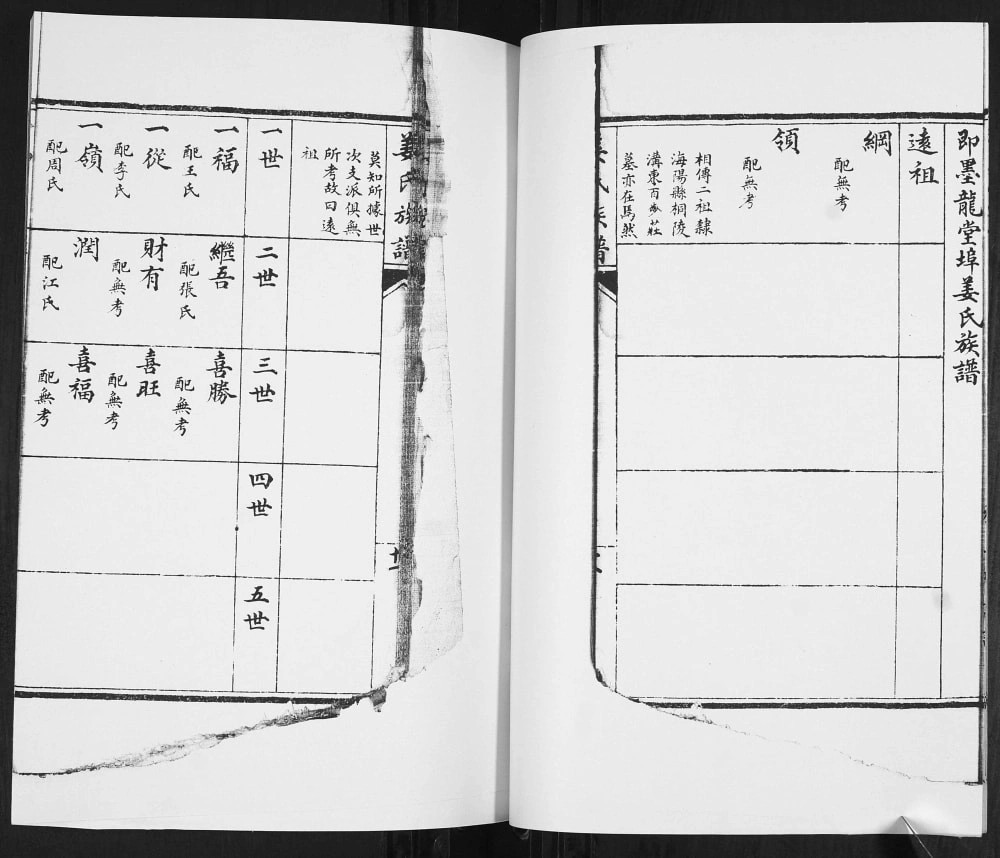 即墨龍堂埠姜氏族譜
遠祖
綱
配無考
領
配無考
相傳二祖隸
海陽縣桐陵
溝東百㱔莊
墓亦在馬然
姜氏族譜
莫知所據世
次支派俱無
所考故曰遠
祖
一世
一福
配王氏
一從
配李氏
一嶺
配周氏
二世
繼吾
配張氏
財有
配無考
潤
配江氏
三世
喜勝
配無考
喜旺
配無考
喜福
配無考
四世
五世